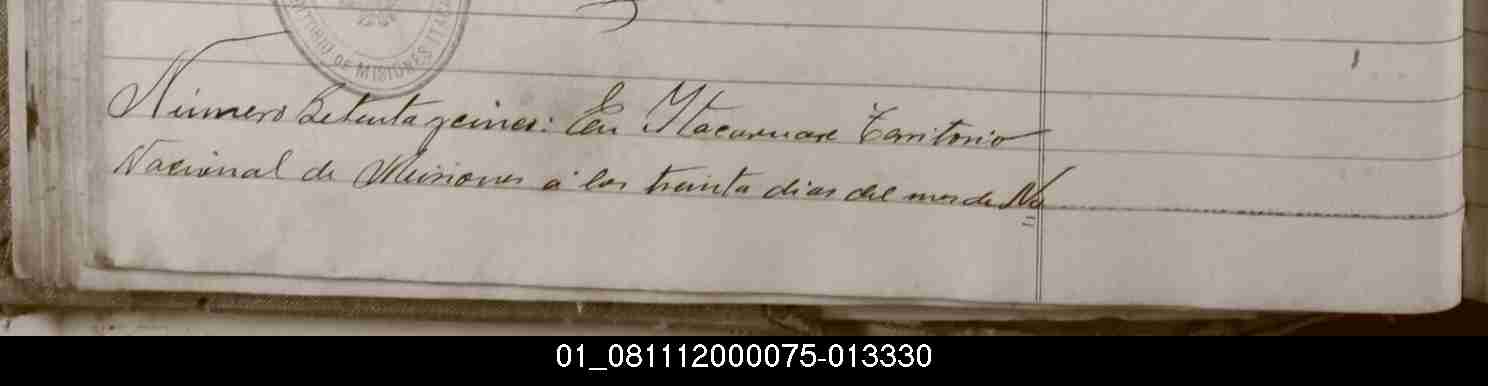 TORIO DE MISIONES ITACA
Número Setenta y cinco: En Itacaruare Territorio
Nacional de Misiones á los treinta dias del mes de No
01_081112000075-013330